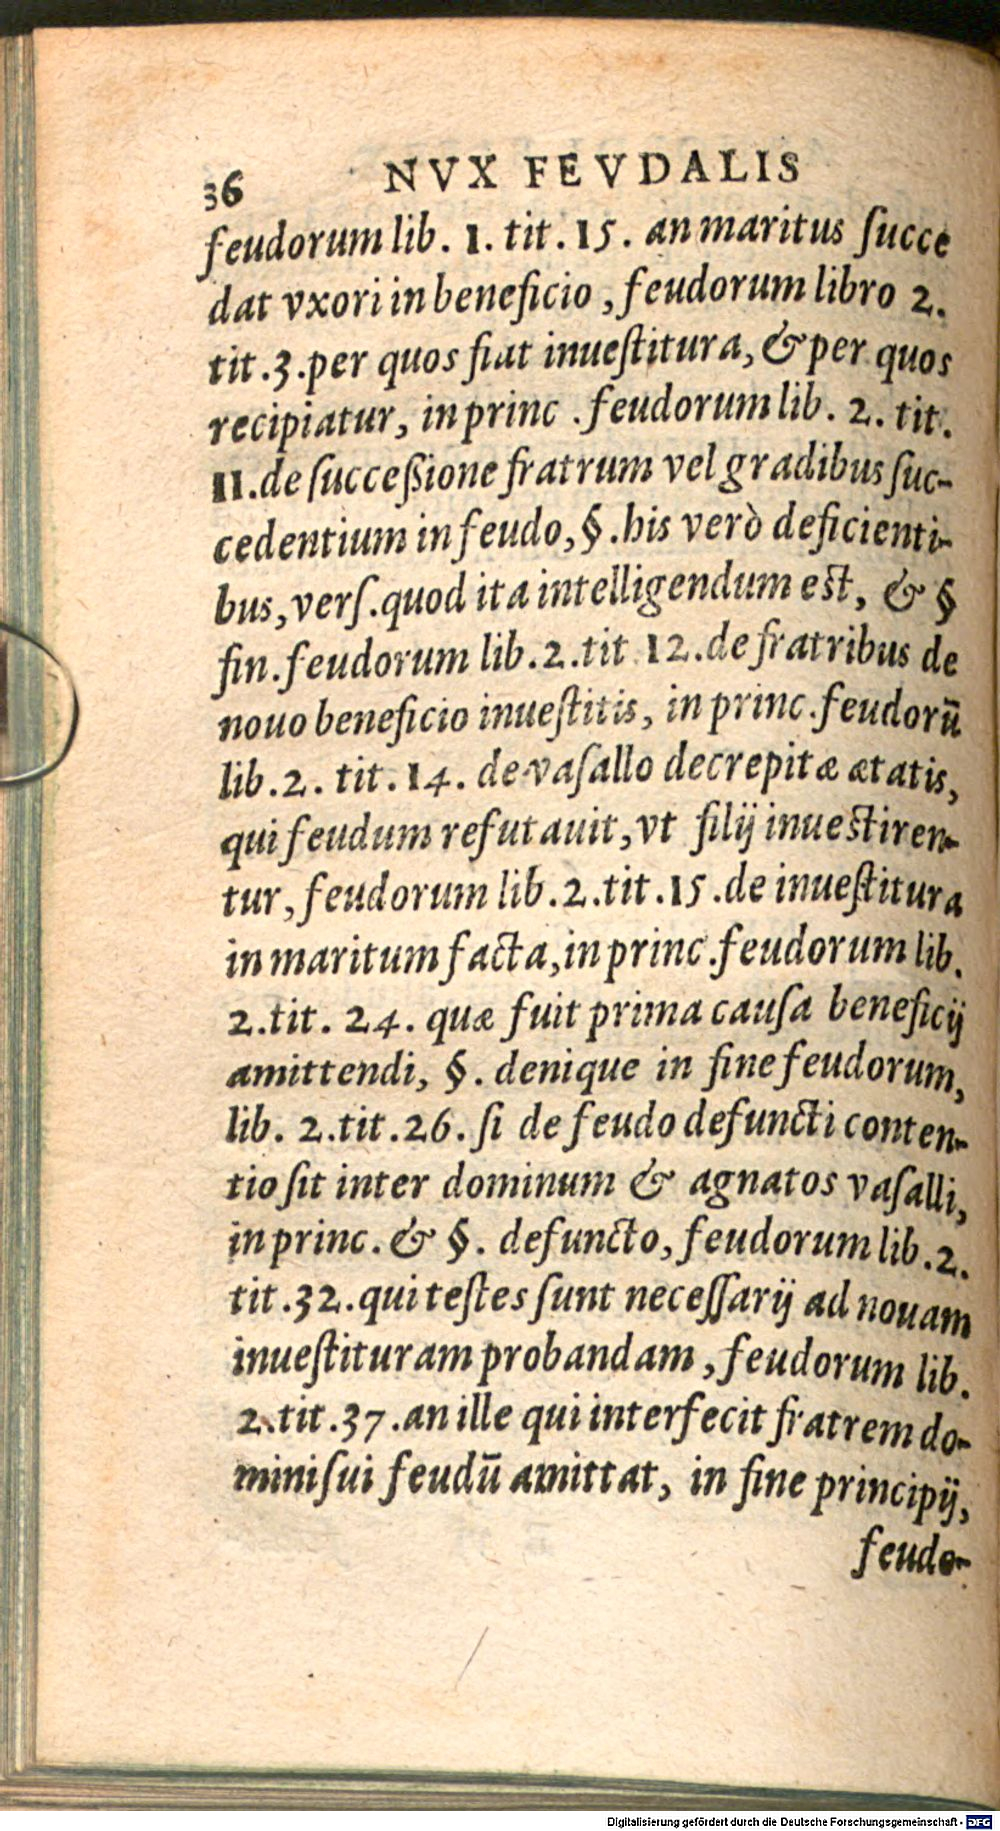 36 NVX FEVDALIS
feudorum lib. 1. tit. 15. an maritus ſucce
dat vxori in beneficio, feudorum libro 2.
tit. 3. per quos fiat inueſtitura, & per quos
recipiatur, in princ. feudorum lib. 2. tit.
11. de ſucceßione fratrum vel gradibus ſuc-
cedentium in feudo, §. his verò deficienti-
bus, verſ. quod ita intelligendum eſt, & §
fin. feudorum lib. 2. tit 12. de fratribus de
nouo beneficio inueſtitis, in princ. feudorū
lib. 2. tit. 14. de vaſallo decrepitæ ætatis,
qui feudum refutauit, vt filij inueſtiren-
tur, feudorum lib. 2. tit. 15. de inueſtitura
in maritum facta, in princ. feudorum lib.
2. tit. 24. quæ fuit prima cauſa beneficij
amittendi, §. denique in fine feudorum,
lib. 2. tit. 26. ſi de feudo defuncti conten-
tio ſit inter dominum & agnatos vaſalli,
in princ. & §. defuncto, feudorum lib. 2.
tit. 32. qui teſtes ſunt neceſſarij ad nouam
inueſtituram probandam, feudorum lib.
2. tit. 37. an ille qui interfecit fratrem do-
mini ſui feudū amittat, in fine principij,
feudo-
Digitalisierung gefördert durch die Deutsche Forschungsgemeinschaft - DFG